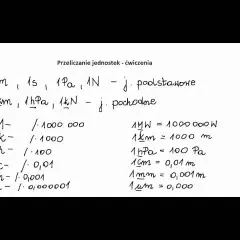 Przeliczanie jednostek - ćwiczenia
m, 1s, 1Pa, 1N - j. podstawowe
m, 1hPa, 1kN - j. pochodne
/· 1000 000
/· 1000
/· 100
/· 0,01
/· 0,001
/· 0,000001
1MW = 1000000W
1km = 1000 m
1hPa = 100 Pa
1cm = 0,01 m
1mm = 0,001m
1μm = 0,000